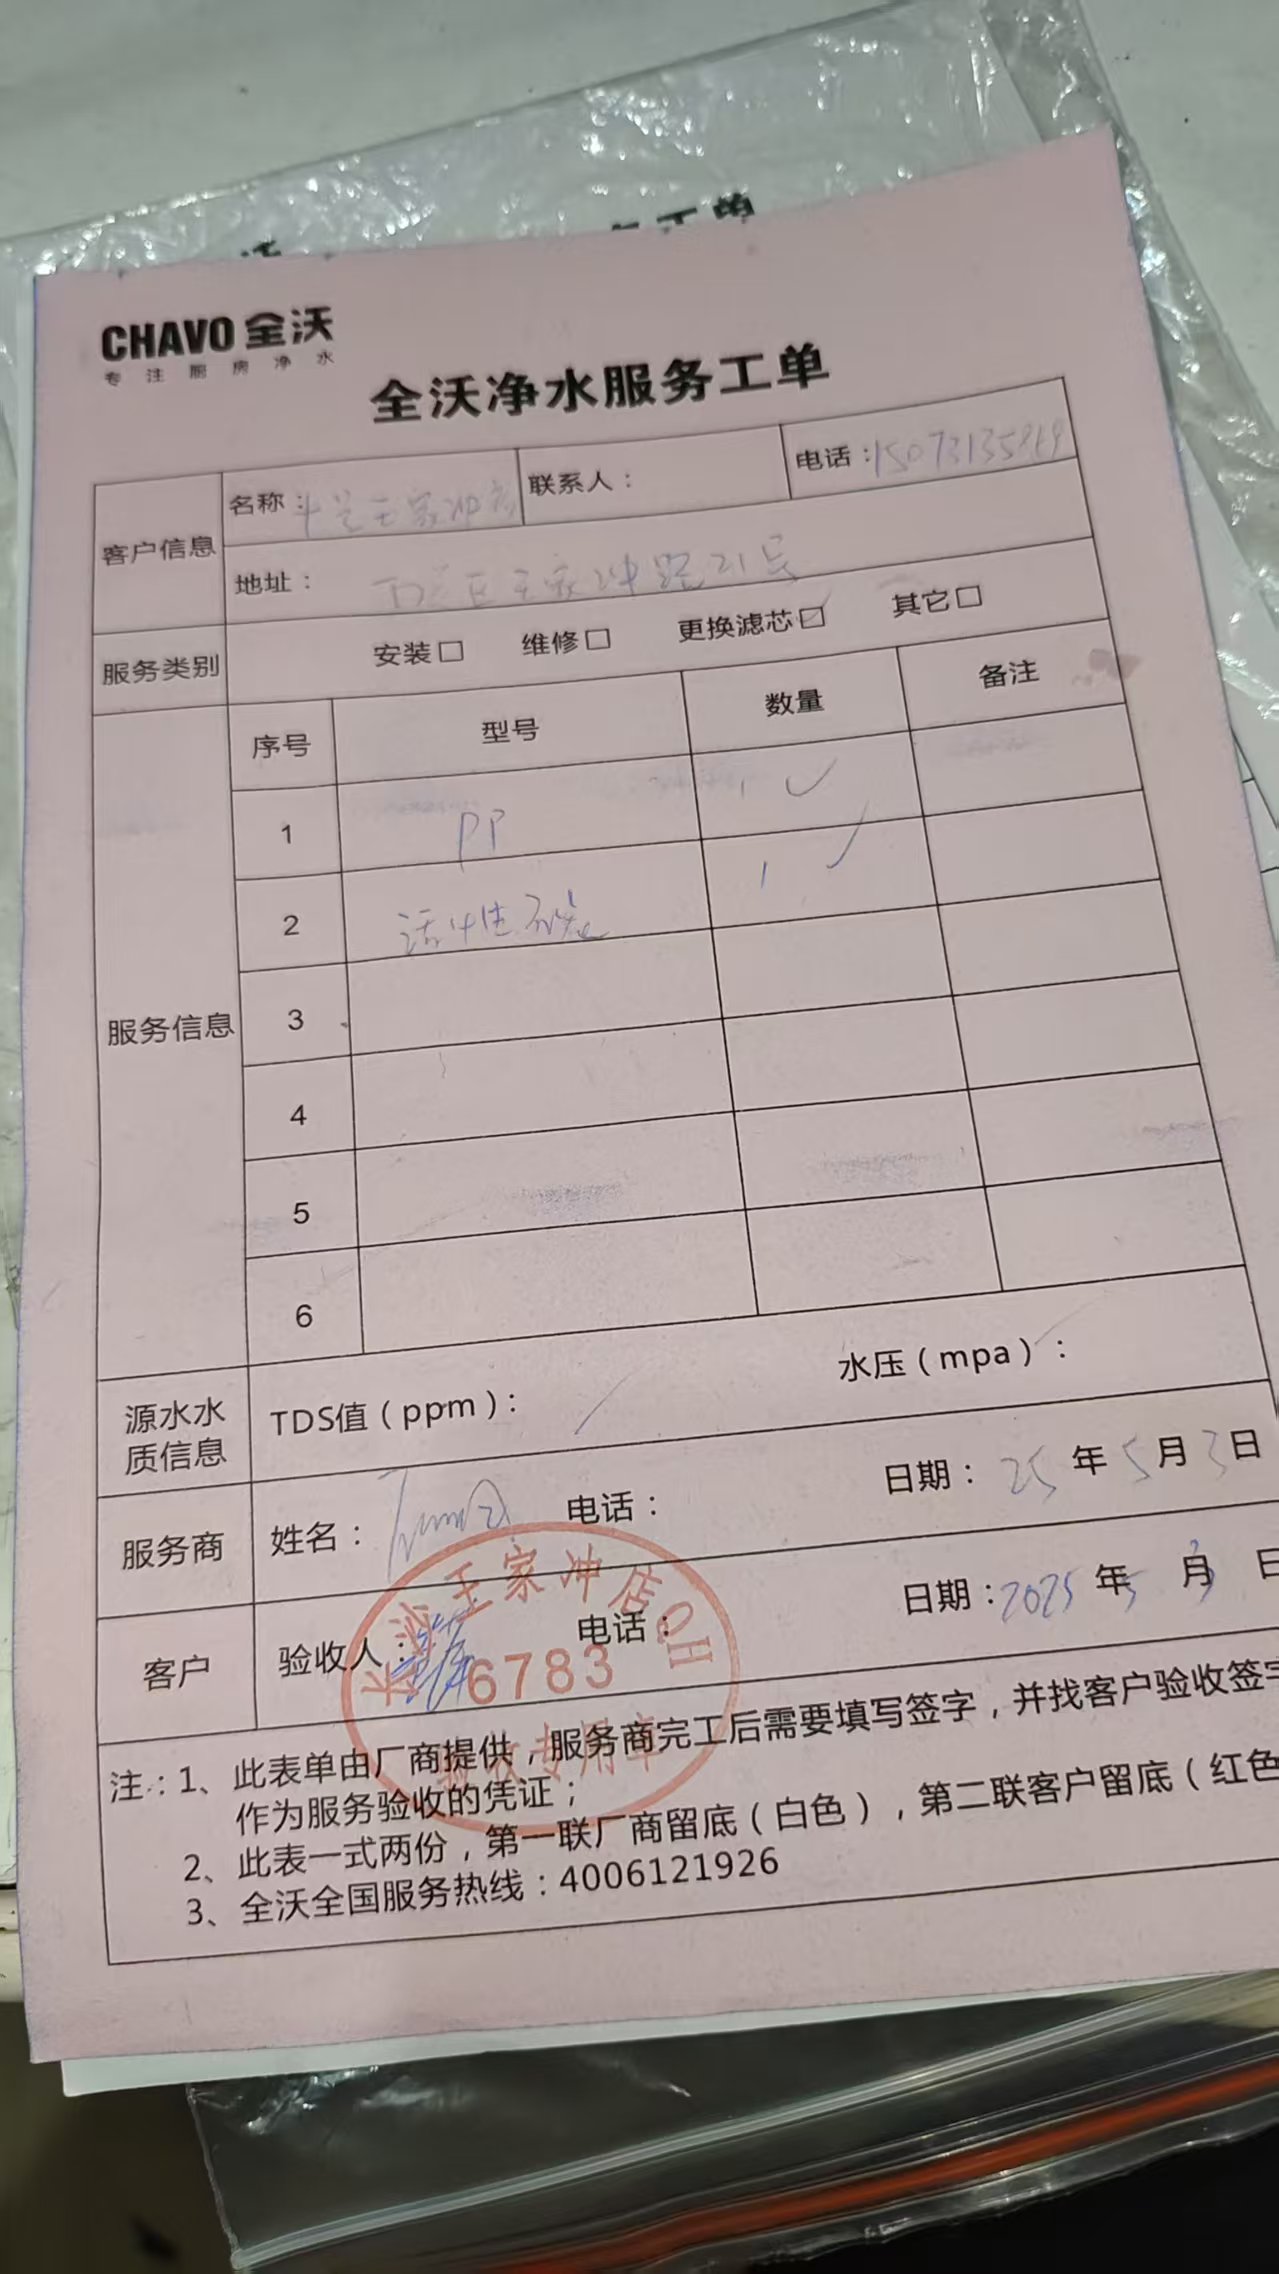 CHAVO 全沃
专注厨房净水
全沃净水服务工单
客户信息
名称： 王家冲
联系人：
电话：
地址： 王家冲路21号
服务类别
安装□ 维修□ 更换滤芯☑ 其它□
服务信息
序号 型号 数量 备注
1 PP 1 ✓
2 活性炭 1 ✓
3
4
5
6
源水水质信息
TDS值（ppm）： 水压（mpa）：
服务商
姓名： 电话： 日期：25年5月3日
客户
验收人： 电话： 日期：2025年5月3日
长沙王家冲店QH
6783
验收专用章
注：1、此表单由厂商提供，服务商完工后需要填写签字，并找客户验收签字
作为服务验收的凭证；
2、此表一式两份，第一联厂商留底（白色），第二联客户留底（红色
3、全沃全国服务热线：4006121926